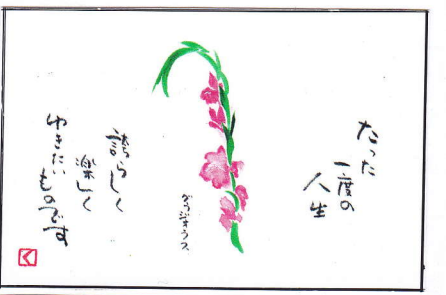 たった
一度の
人生
グラジオラス
誇らしく
楽しく
ゆきたい
ものです
く